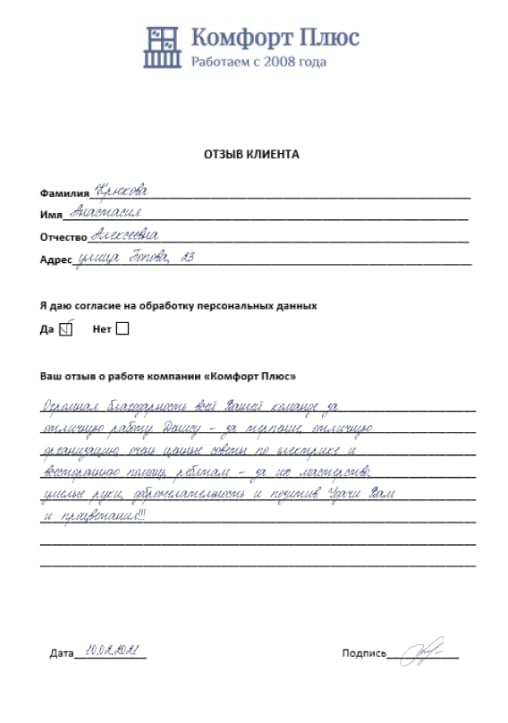 Комфорт Плюс
Работаем с 2008 года
ОТЗЫВ КЛИЕНТА
Фамилия Крюкова
Имя Анастасия
Отчество Алексеевна
Адрес улица Попова, 23
Я даю согласие на обработку персональных данных
Да ☑ Нет ☐
Ваш отзыв о работе компании «Комфорт Плюс»
Огромная благодарность всей Вашей команде за
отличную работу Денису - за терпение, отличную
организацию, очень ценные советы по электрике и
всестороннюю помощь, ребятам - за их мастерство,
умелые руки, доброжелательность и позитив Удачи Вам
и процветания!!!
Дата 10.02.2021
Подпись